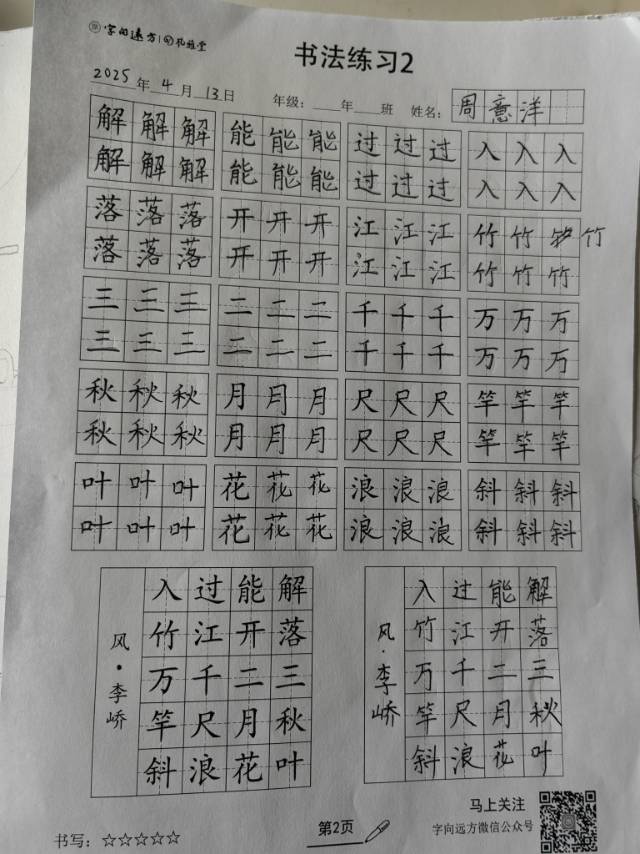 字向远方
书法练习2
2025年4月13日 年级：___年___班 姓名：周意洋
解解解 能能能 过过过 入入入
解解解 能能能 过过过 入入入
落落落 开开开 江江江 竹竹 竹
落落落 开开开 江江江 竹竹竹
三三三 二二二 千千千 万万万
三三三 二二二 千千千 万万万
秋秋秋 月月月 尺尺尺 竿竿竿
秋秋秋 月月月 尺尺尺 竿竿竿
叶叶叶 花花花 浪浪浪 斜斜斜
叶叶叶 花花花 浪浪浪 斜斜斜
解落三秋叶
能开二月花
过江千尺浪
入竹万竿斜
风·李峤
解落三秋叶
能开二月花
过江千尺浪
入竹万竿斜
风·李峤
书写：☆☆☆☆☆
第2页
马上关注
字向远方微信公众号